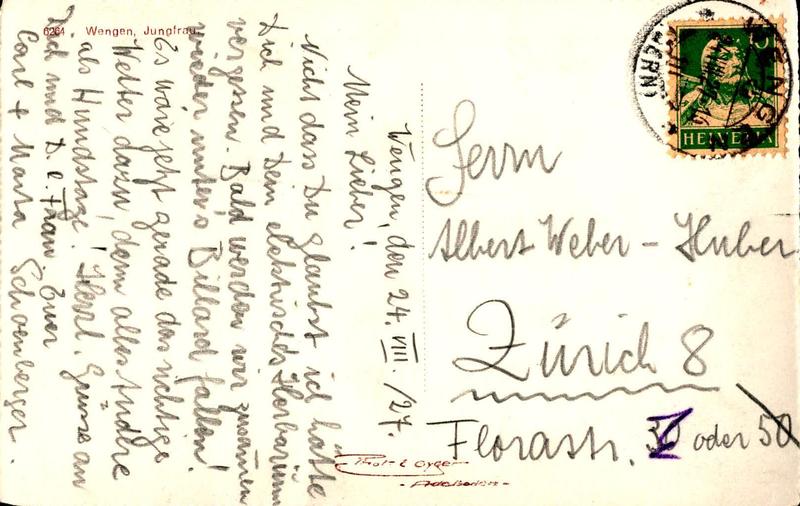 6264 Wengen, Jungfrau.
Wengen, den 24. VIII. /27.
Mein Lieber!
Nicht dass Du glaubst ich hätte
Dich und Dein elektrisches Herbarium
vergessen. Bald werden wir zusammen
wieder unters Billard fallen!
Es wäre jetzt gerade das richtige
Wetter dazu, denn alles Andere
als Hundstage. Herzl. Grüsse an
Dich und D. l. Frau. Euer
Carl + Marta Schoenberger.
Herrn
Albert Weber - Huber
Zürich 8
Florastr. 30 oder 50
Phot. E. Gyger
- Adelboden -
WENGEN
(BERN)
HELVETIA